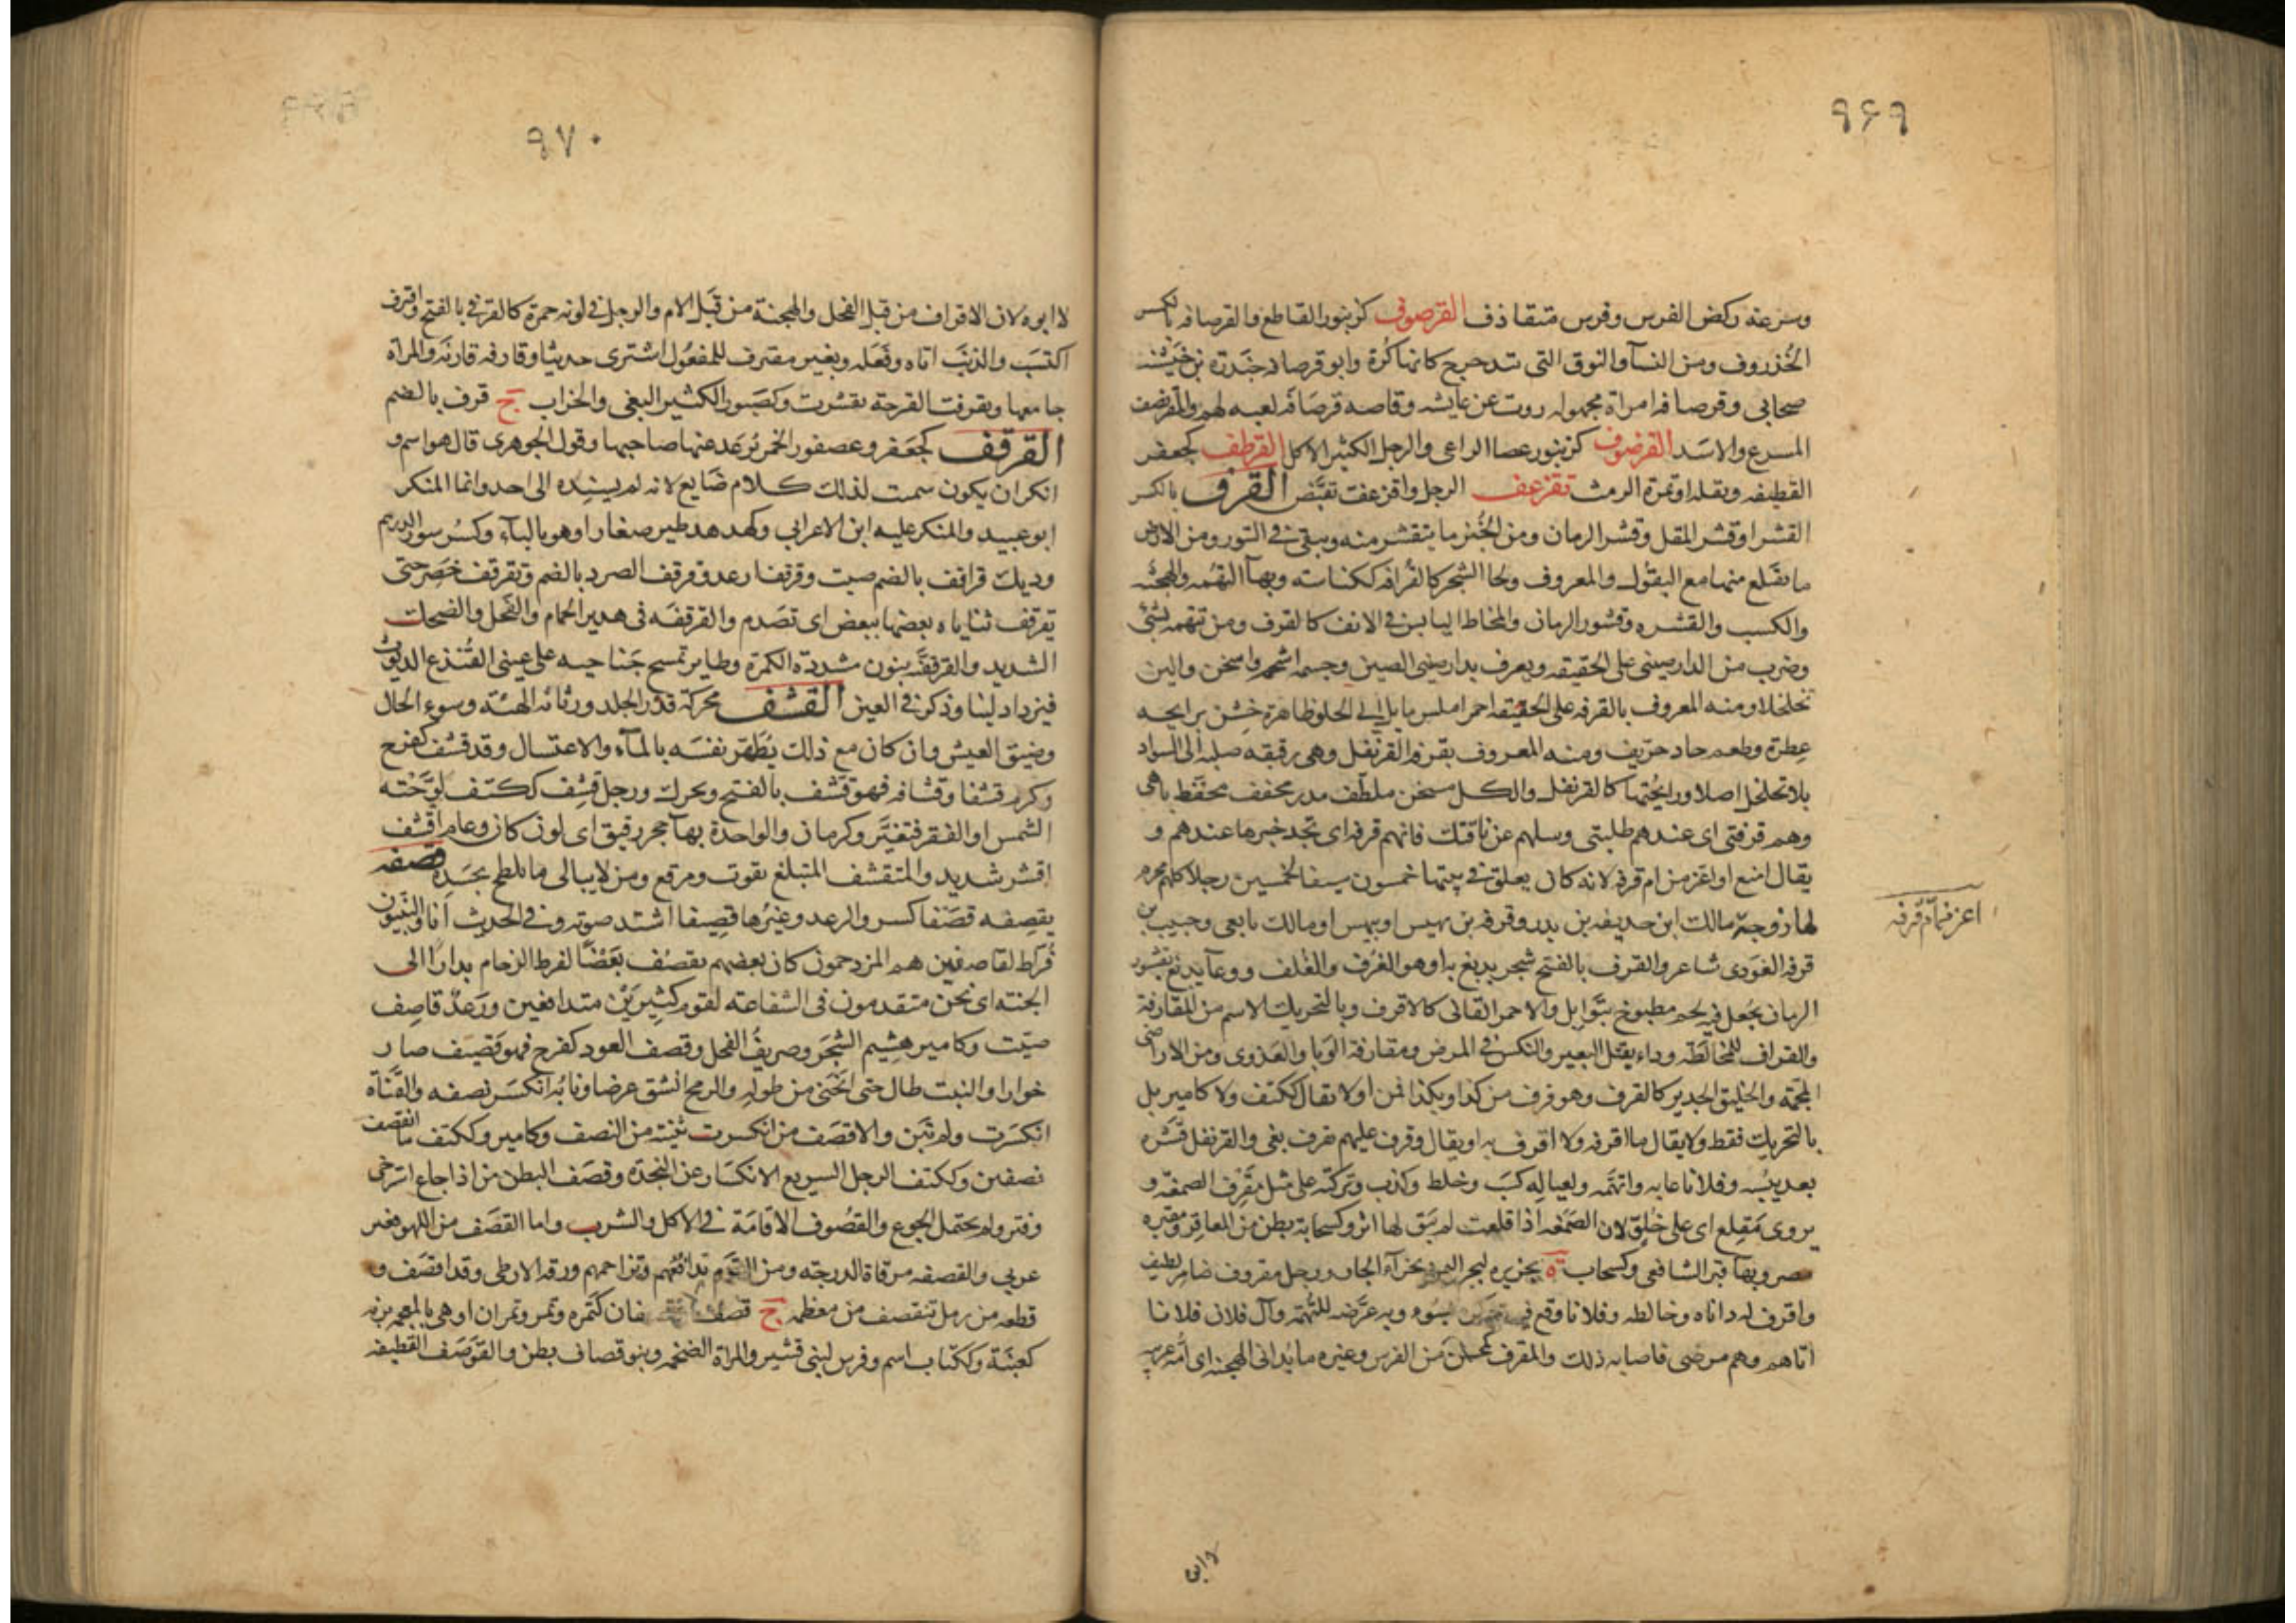 ٩۶٩
وسرعة ركض الفرس وفرس متقاذف القرصوف كزنبور القاطع والقرصافه بالكسر
الخُذروف ومن النسآ والنوق التى تتدحرج كانها كُرة وابو قرصافه جَندرة بن خَيشنه
صحابى وقرصافه امراة مجهوله روت عن عايشه وقاصه قرصَافه لعبه لهم والمقرضف
المسرع والاسَد القرضوف كزنبور عصا الراعى والرجل الكثير الاكل القرطف كجعفر
القطيفه وبقله او ثمرة الرمث تقرعف الرجل واقرعف تقبَّض القرف بالكسر
القشر او قشر المقل وقشر الرمان ومن الخُبز ما يتقشر منه ويبقى فى التنور ومن الارض
ما يقلع منها مع البقول والمعروف ولحا الشجر كالقُرافه ككناسة وبهآ التهَمه والهجنه
والكسب والقشره وقشور الرمان والمخاط اليابس فى الانف كالقرف ومن تتهمه بشئ
وضرب من الدارصينى على الحقيقه ويعرف بدارصينى الصين وجسمه اشحم واسخن والين
تخلخلا ومنه المعروف بالقرفه على الحقيقه احمر املس مايل الى الحلو ظاهره خشن برايحه
عطرة وطعم حاد حرّيف ومنه المعروف بقرفه القرنفل وهى رقيقه صلبه الى السواد
بلا تخلخل اصلا ورايحتها كالقرنفل والكل مسخن ملطّف مدر مجفف محفظ باهى
وهم قرفتى اى عندهم طلبتى وسلهم عن ناقتك فانهم قرفه اى تجد خبرها عندهم و
يقال امنع او اعز من ام قرفه لانه كان يعلق فى بيتها خمسون سيفا لخمسين رجلا كلهم محرم
اعز من ام قرفه
لها زوجة مالك ابن حذيفه بن بدر وقرفه بن بهيس او بيهس او مالك تابعى وحبيب بن
قرفه العَوَذى شاعر والقرف بالفتح شجر يدبغ به او هو الغَرْف والغَلف ووعآ يدبغ بقشور
الرمان يجعل فيه لحم مطبوخ بتَوابل والاحمر القانى كالاقرف وبالتحريك الاسم من المقارفة
والقراف للمخالطه وداء يقتل البعير والنكس فى المرض ومقارفة الوَبا والعَدوى ومن الاراضى
المحمّة والخليق الجدير كالقرف وهو قرف من كذا وبكذا قمن او لا يقال ككتف ولا كامير بل
بالتحريك فقط ولا يقال ما اقرفه ولا اقرف به او يقال وقرف عليهم يقرف بغى والقرنفل قشره
بعد يبسه وفلانا عابه واتهمه ولعياله كسب وخلط وكذب وتركته على مثل مَقْرِف الصمغه و
يروى مَقلِع اى على خُلوّ لان الصمغه اذا قلعت لم يَبق لها اثر وكسحابة بطن من المعافر ومقبره
مصر وبها قبر الشافعى وكسحاب ة بجزيره لبحر اليمن بحذآء الجار ورجل مقروف ضامر لطيف
واقرف له داناه وخالطه وفلانا وقع فيه وذكره بسوء وبه عرَّضه للتهَمه وآل فلان فلانا
اتاهم وهم مرضى فاصابه ذلك والمقرف كمحسن من الفرس وغيره ما يُدانى الهجنه اى امّه عربيه
٩٧٠
لا ابوه لان الاقراف من قبل الفحل والهجنة من قِبَل الام والرجل فى لونه حمرة كالقرفى بالفتح واقترف
اكتسَب والذنبَ اتاه وفَعَله وبعير مقترف للمفعُول اشترى حديثا وقارفه قاربَه والمراة
جامعها وتقرفت القرحة تقشرت وكصَبور الكثير البغى والجراب ج قرف بالضم
القرقف كجَعفر وعصفور الخمر يُرعَد عنها صاحبها وقول الجوهرى قال هو اسم و
انكر ان يكون سميت لذلك كلام ضَايع لانه لم يسنده الى احد وانما المنكر
ابو عبيد والمنكر عليه ابن الاعرابى وكهدهد طير صغار او هو بالبآء وكسُرسور الدرهم
وديك قراقف بالضم صيت وقرقف ارعد وقرقف الصرد بالضم وتقرقف خصَر حتى
تقرقف ثناياه بعضها ببعض اى تصَدم والقرقفَه فى هدير الحمام والفحل والضحك
الشديد والقرقفنَّه بنون مشددة الكمرة وطاير تمسح جَناحيه على عينى القُنذع الديوث
فيزداد لينا وذكر فى العين القشف محركة قذر الجلد ورثاثه الهيئه وسوء الحال
وضيق العيش وان كان مع ذلك يُطهر نفسَه بالمآء والاغتسال وقد قشف كفرح
وكرم قشفا وقشافه فهو قشف بالفتح ويحرك ورجل قشِف ككتف لوَّحته
الشمس او الفقر فتغيَّر وكرمان والواحدة بهآ حجر رقيق اى لون كان وعام اقشف
اقشر شديد والمتقشف المتبلغ بقوت ومرقع ومن لا يبالى ما تلطخ بجَسده قصفه
يقصِفه قصَفا كسره والرعد وغيره قصِيفا اشتد صوته وفى الحديث اَنا والنَّبيون
فُراط لقاصفين هم المزدحمون كان بعضهم يقصُف بَعْضًا لفرط الزحام بدارًا الى
الجنته اى نحن متقدمون فى الشفاعته لقوم كثِيرَيْن متدافعين ورَعدٌ قاصِف
صيّت وكامير هشِيم الشجَر وصريفُ الفحل وقصف العود كفرح فهو قصِيف صار
خوارا والنبت طال حتى انحَنى من طوله والرمح انشق عرضا ونابُه انكسَر نصفه والقَناة
انكسَرت ولم تبن والاقصَف من انكسرت ثنيته من النصف وكامير وككتف ما انقصف
نصفين وككتف الرجل السريع الانكسَار عن النجدَة وقصَف البطن من اذا جاع استرخى
وفتر ولم يحتمل الجوع والقصُوف الاقامَة فى الاكل والشرب واما القصَف من اللهو فغير
عربى والقصفه مرقاة الدرجَه ومن القوم تدافُعُهم وتزاحمهم ورقه الارطى وقد اقصَف و
قطعه من رمل تنقصف من معظمه ج قصف وقصفان كتَمره وتمر وتمران او هى بالمعجمه
كعِنَبة وككتاب اسم وفرس لبنى قشير والمراة الضخمه وبنو قصاف بطن والقَوصَف القطيفه